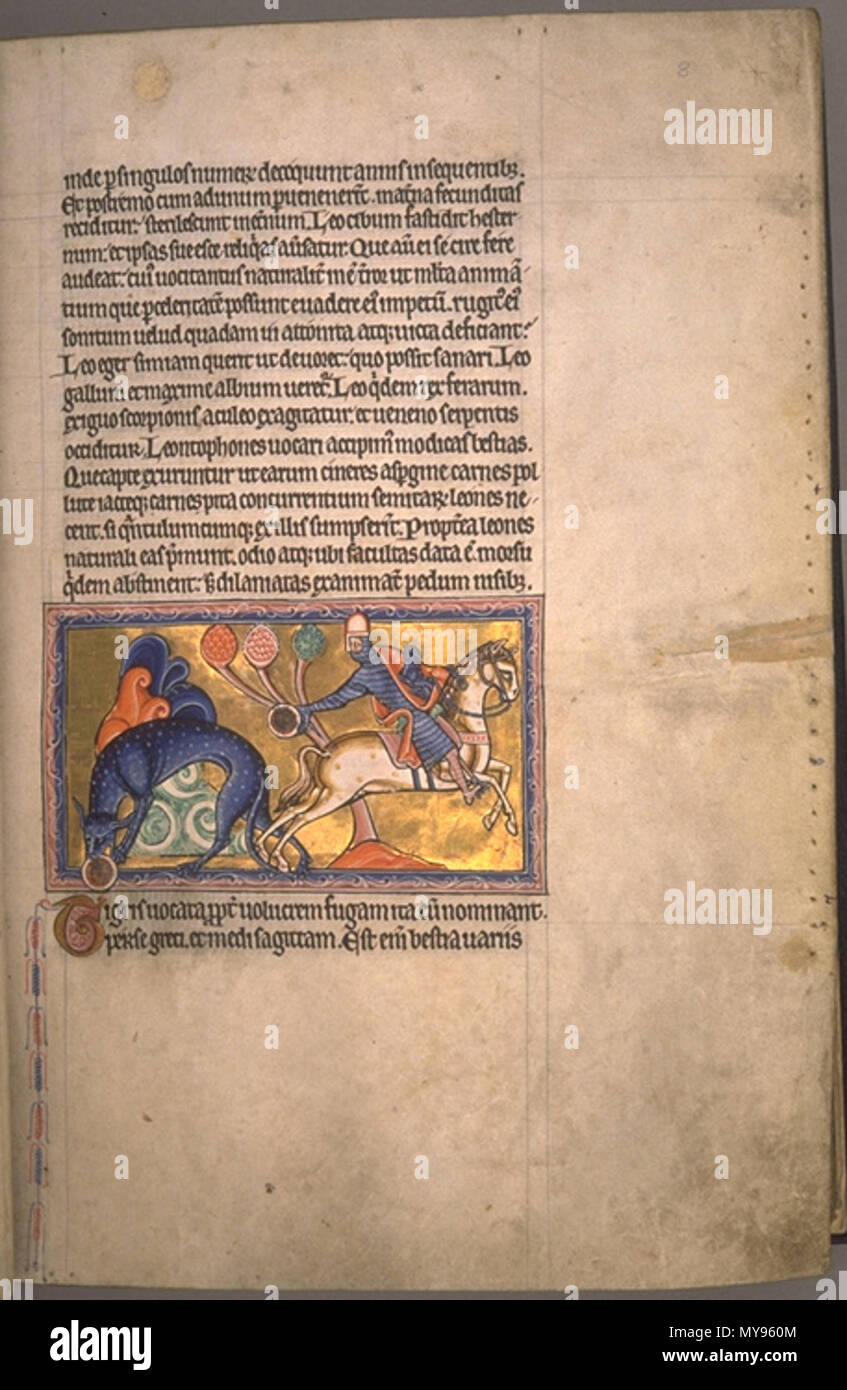 8
inde p singulos numerꝝ decoquunt annis insequentibꝫ.
Et postremo cum ad unum puenerint. mat̾na fecunditas
reciditur: sterilescunt inet̾num. Leo cibum fastidit hester
num: et ipsas sue esce reliq̄as au̾satur. Que aū ei se cire fere
audeat: cui᾽ uocitantus naturalit̾ inē t̾ror ut ml̄ta animā
tium que p celeritatē possunt euadere ei᾽ impetū. rugit᾽ ei᾽
sonitum uelud quadam ui attonita atqꝫ uicta deficiant.
Leo eger simiam querit ut deuoret: quo possit sanari. Leo
gallum et maxime album ueret᾽. Leo q̇dem rex ferarum.
exiguo scorpionis aculeo exagitatur: et ueneno serpentis
occiditur. Leontophones uocari accipim᾽ modicas bestias.
Que capte exuruntur ut earum cineris aspgine carnes pol
lute iacteqꝫ carnes p ita concurrentium semitaꝝ: leones ne
cent. si q̄ntulumcumqꝫ ex illis sumpserīt. Propt̾ea leones
naturali eas p̄munt. odio atqꝫ ubi facultas data ē. morsu
q̇dem abstinent: dilaniatas exanimāt pedum nisibꝫ.
Tigris uocata ppt̾ uolucrem fugam ita eū nominant.
perse greci. et medi sagittam. Est enī bestia uariis
alamy
alamy
Image ID: MY960M
www.alamy.com